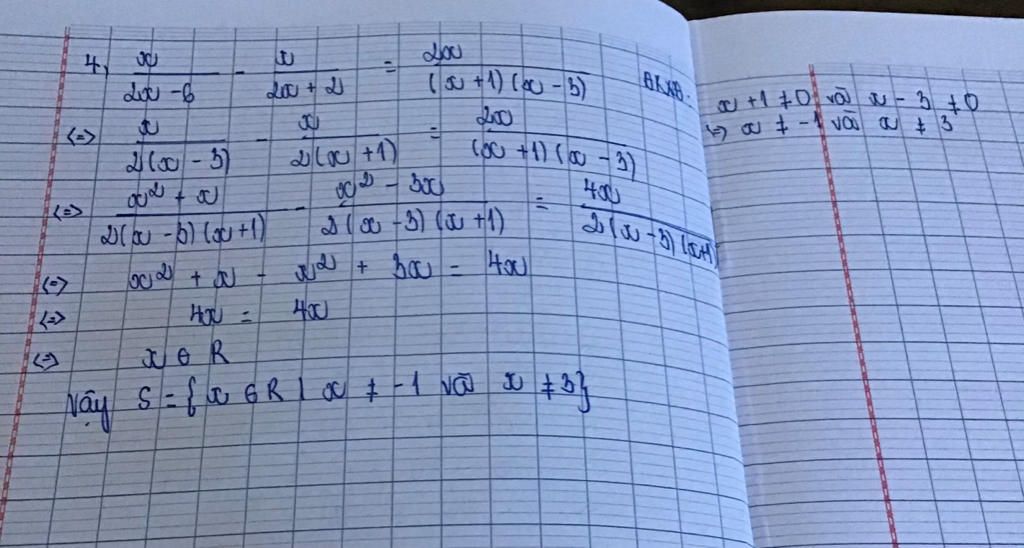 4, x/(2x - 6) - x/(2x + 2) = 2x/((x + 1)(x - 3)) ĐKXĐ:
x + 1 ≠ 0 và x - 3 ≠ 0
<=> x ≠ -1 và x ≠ 3
<=> x/(2(x - 3)) - x/(2(x + 1)) = 2x/((x + 1)(x - 3))
<=> (x² + x)/(2(x - 3)(x + 1)) - (x² - 3x)/(2(x - 3)(x + 1)) = 4x/(2(x - 3)(x + 1))
<=> x² + x - x² + 3x = 4x
<=> 4x = 4x
<=> x ∈ R
Vậy S = {x ∈ R | x ≠ -1 và x ≠ 3}